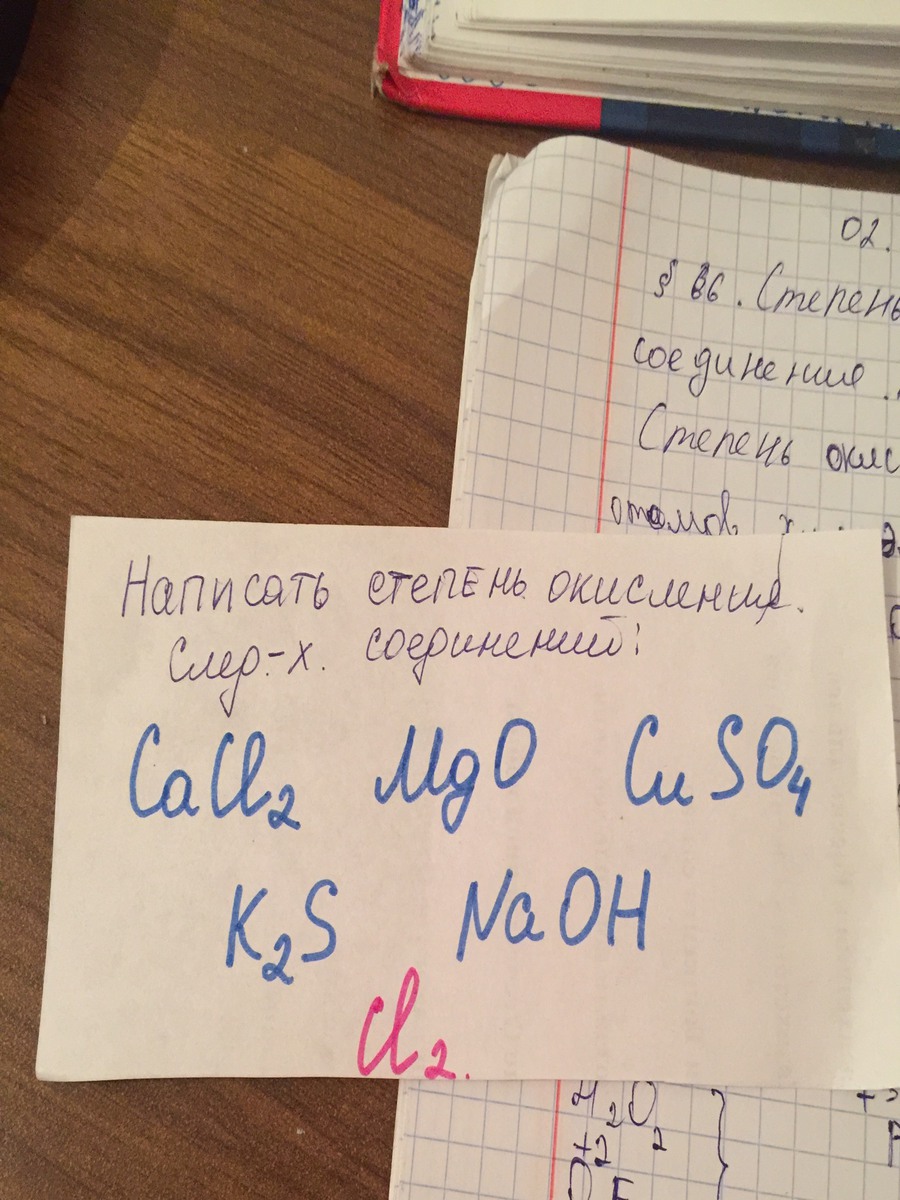 02.
§ 26. Степень
соединения.
Степень
атомов
Написать степень окисления
след-х. соединений:
CaCl2 MgO CuSO4
K2S NaOH
Cl2.
H2O
+2 2